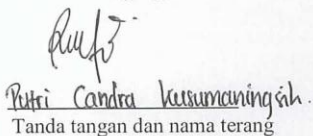 Putri Candra Kusumaningsih.
Tanda tangan dan nama terang